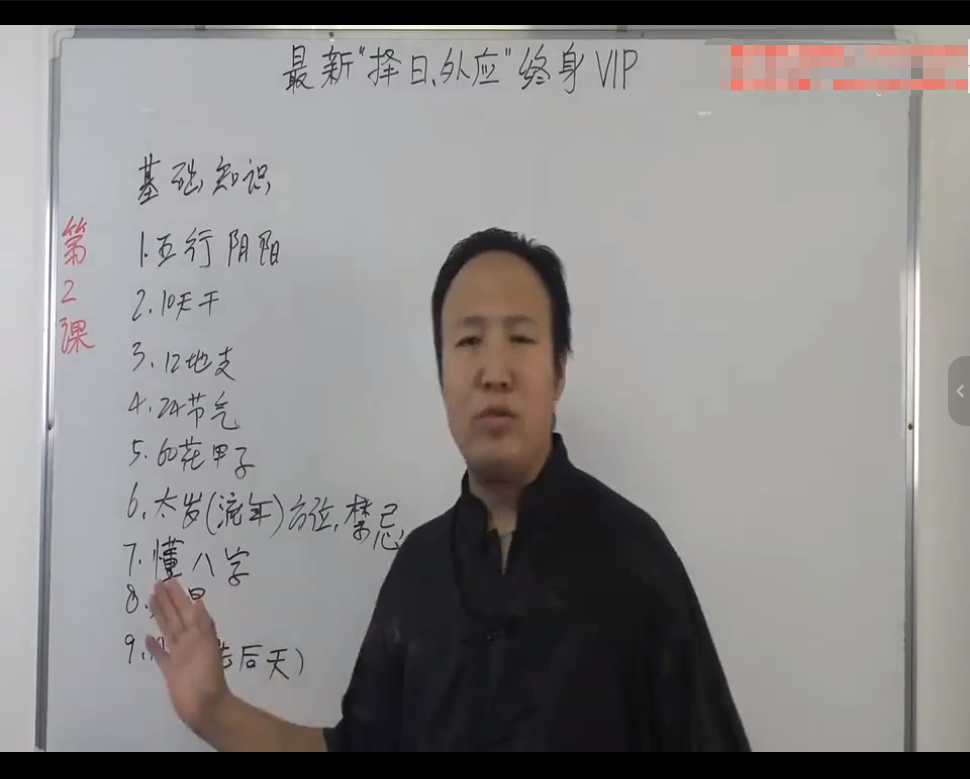 最新"择日、外应"终身VIP
基础知识
第2课
1.五行阴阳
2.10天干
3.12地支
4.24节气
5.60花甲子
6.太岁(流年)方位,禁忌
7.懂八字
8.
9.
后天)